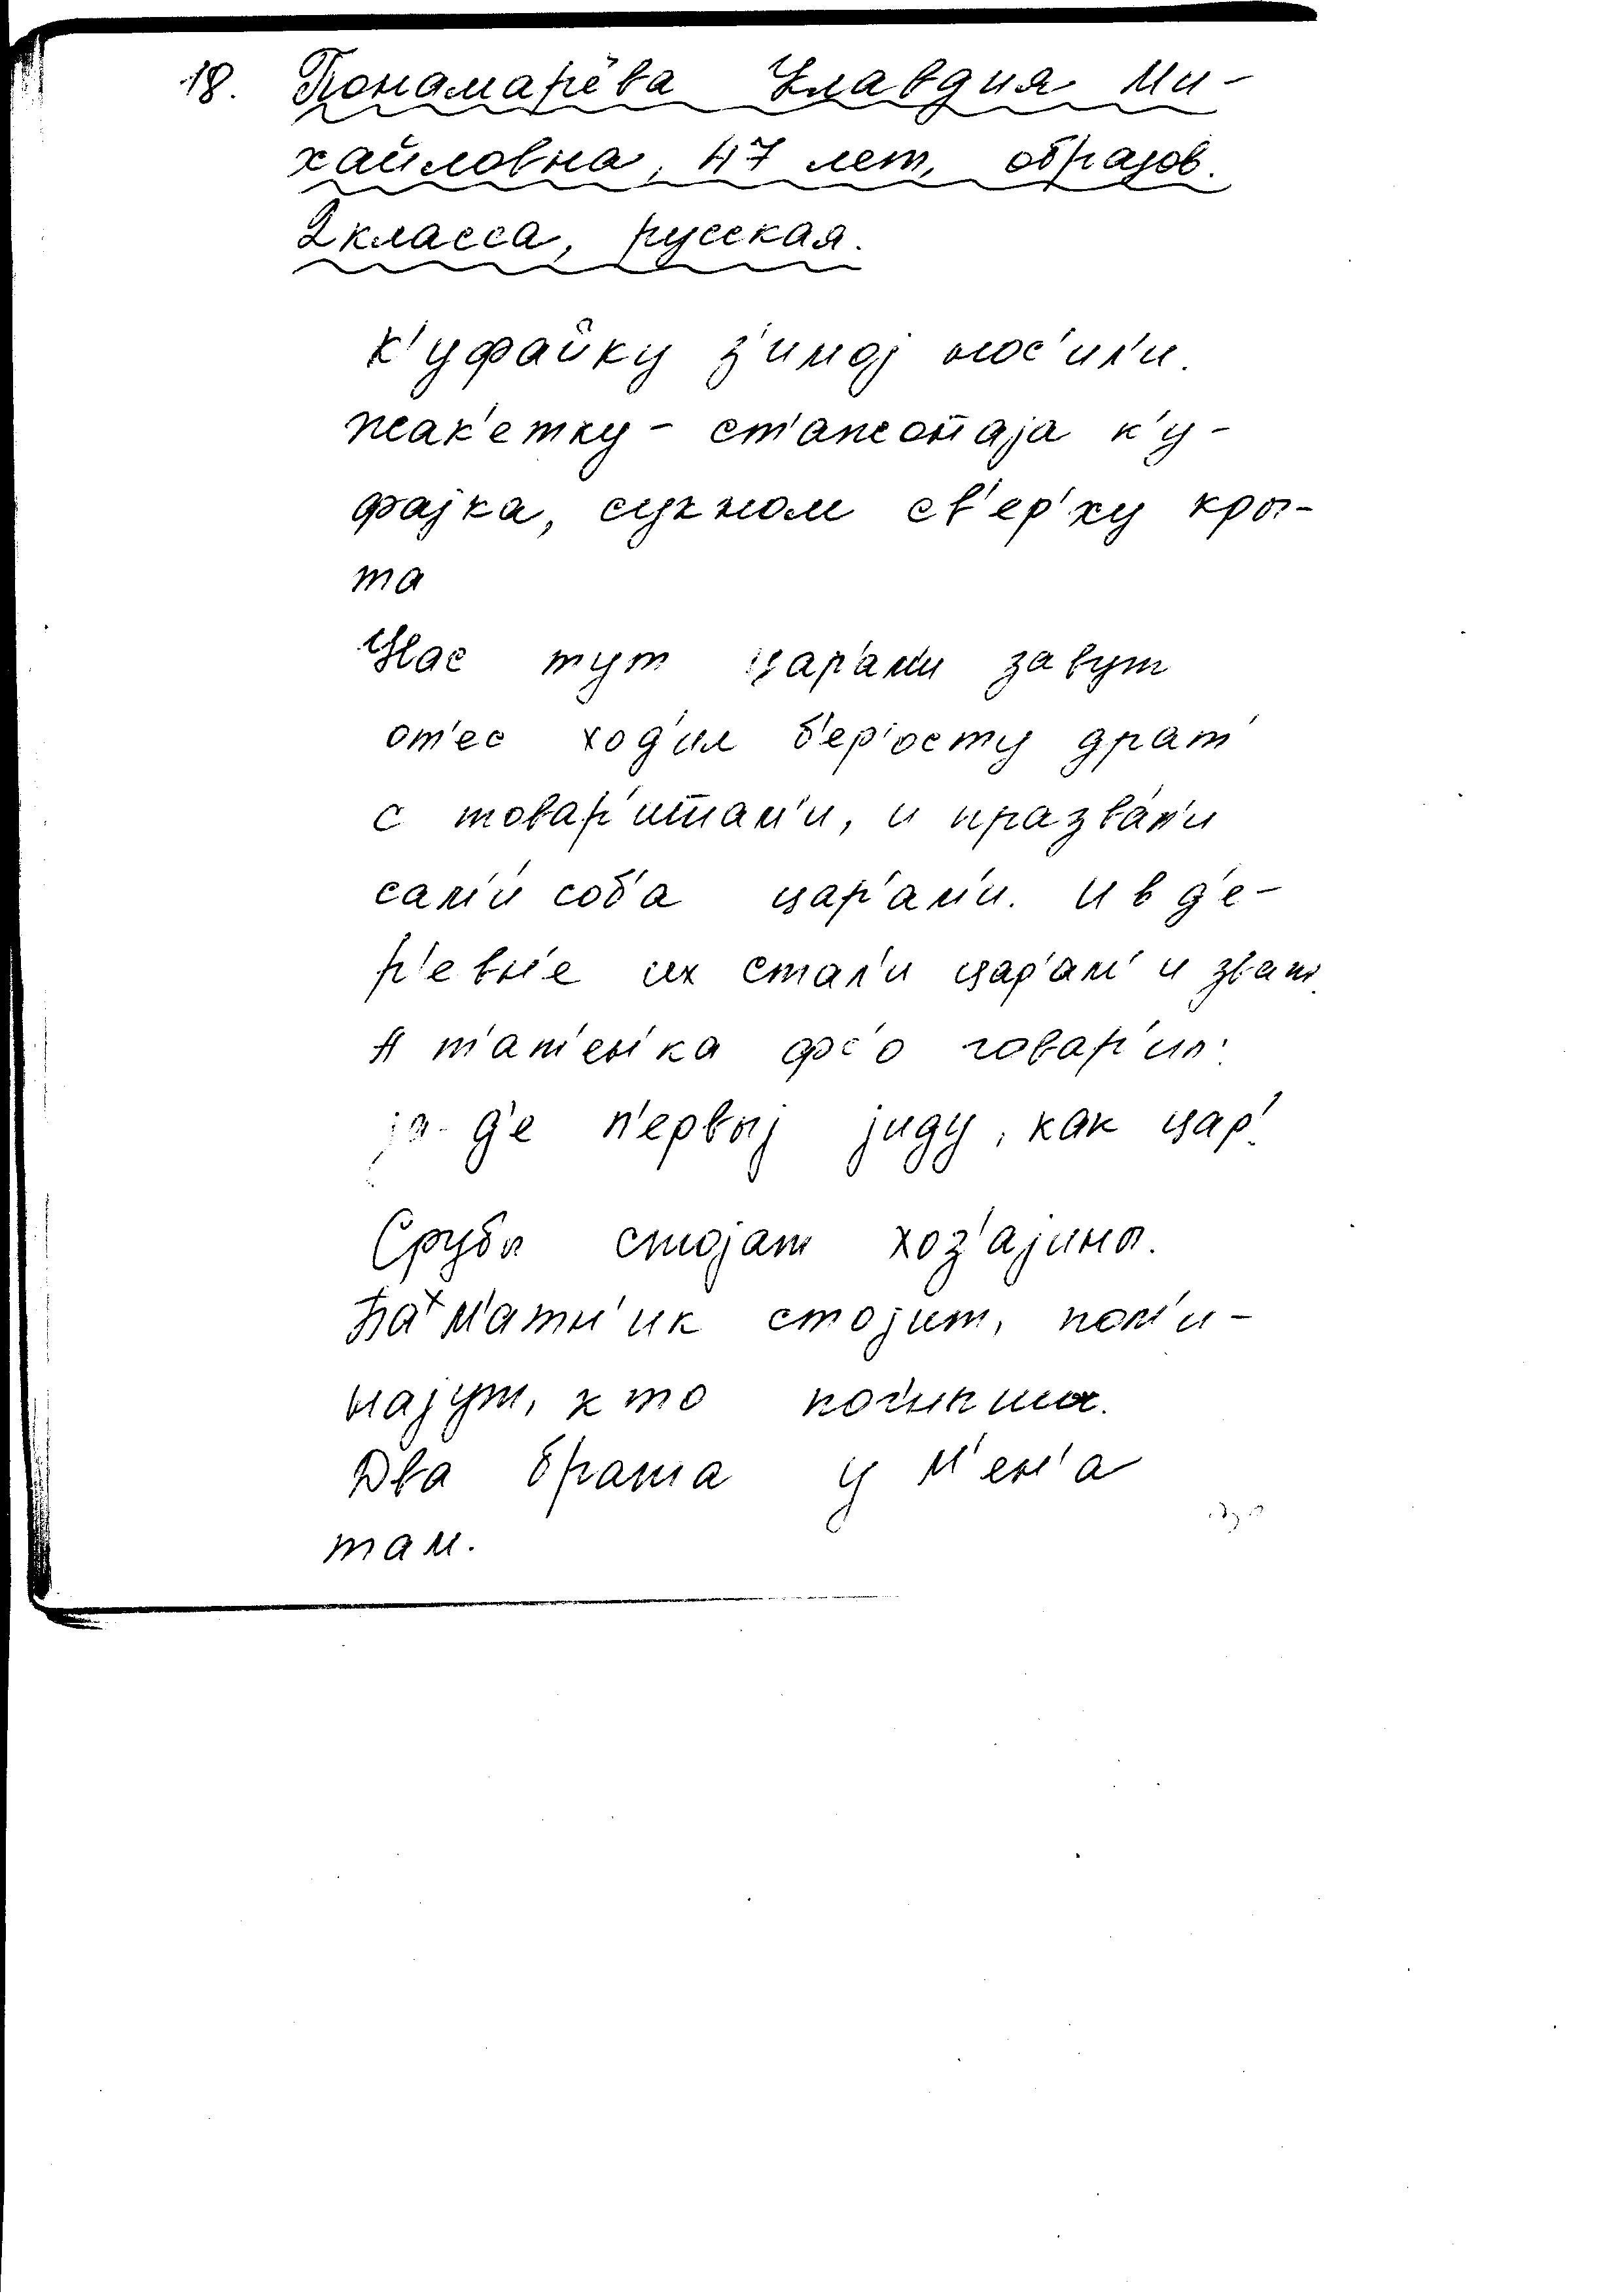 18. Понамарёва Клавдия Ми-
хайловна, 47 лет, образов.
2 класса, русская.
к'уфайку з'имој нос'ил'и.
жак'етку - ст'ажонаја к'у-
фајка, сукном св'ер'ху кры-
та
Нас тут цар'ам'и завут
от'ес ход'ил б'ер'осту драт'
с товар'ишшам'и, и празвал'и
сам'и соб'а цар'ам'и. И в д'е-
р'евн'е их стал'и цар'ам'и зват'.
А т'ат'ен'ка фс'о говар'ил:
ја-д'е п'ервыј јиду, как цар'.
Срубы стојат хоз'ајины.
Пам'атн'ик стојит, пом'и-
најут, кто погыпшы.
Два брата у м'ен'а
там.